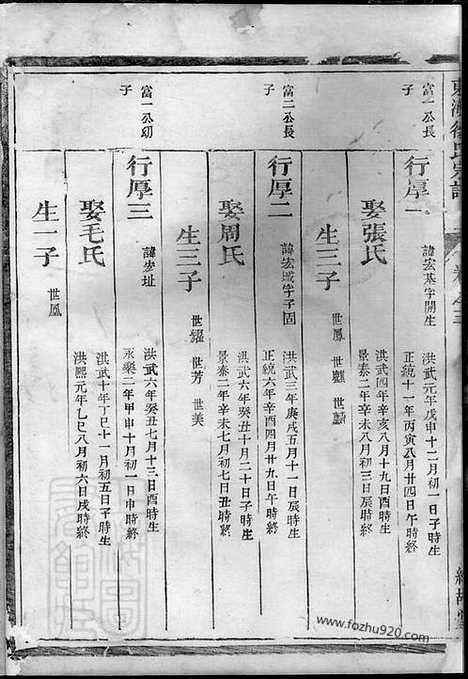 富一公長子
行厚一
諱宏基字開生
洪武元年戊申十二月初一日子時生
正統十一年丙寅八月廿四日午時終
娶張氏
洪武四年辛亥八月十九日酉時生
景泰二年辛未八月初三日辰時終
生三子
世鳳 世麒
富二公長子
行厚二
諱宏域字子固
洪武三年庚戌五月十一日辰時生
正統六年辛酉四月廿九日午時終
娶周氏
洪武六年癸丑十月二十日子時生
景泰二年辛未七月初七日丑時終
生三子
世耀 世芳 世美
富一公幼子
行厚三
諱宏址
洪武六年癸丑七月十三日酉時生
永樂二年甲申十月初一日申時終
娶毛氏
洪武十年丁巳十一月初五日子時生
洪熙元年乙巳八月初六日戌時終
生一子
世鳳
www.fozhu920.com